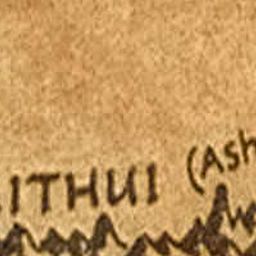 ITHUI (Ash